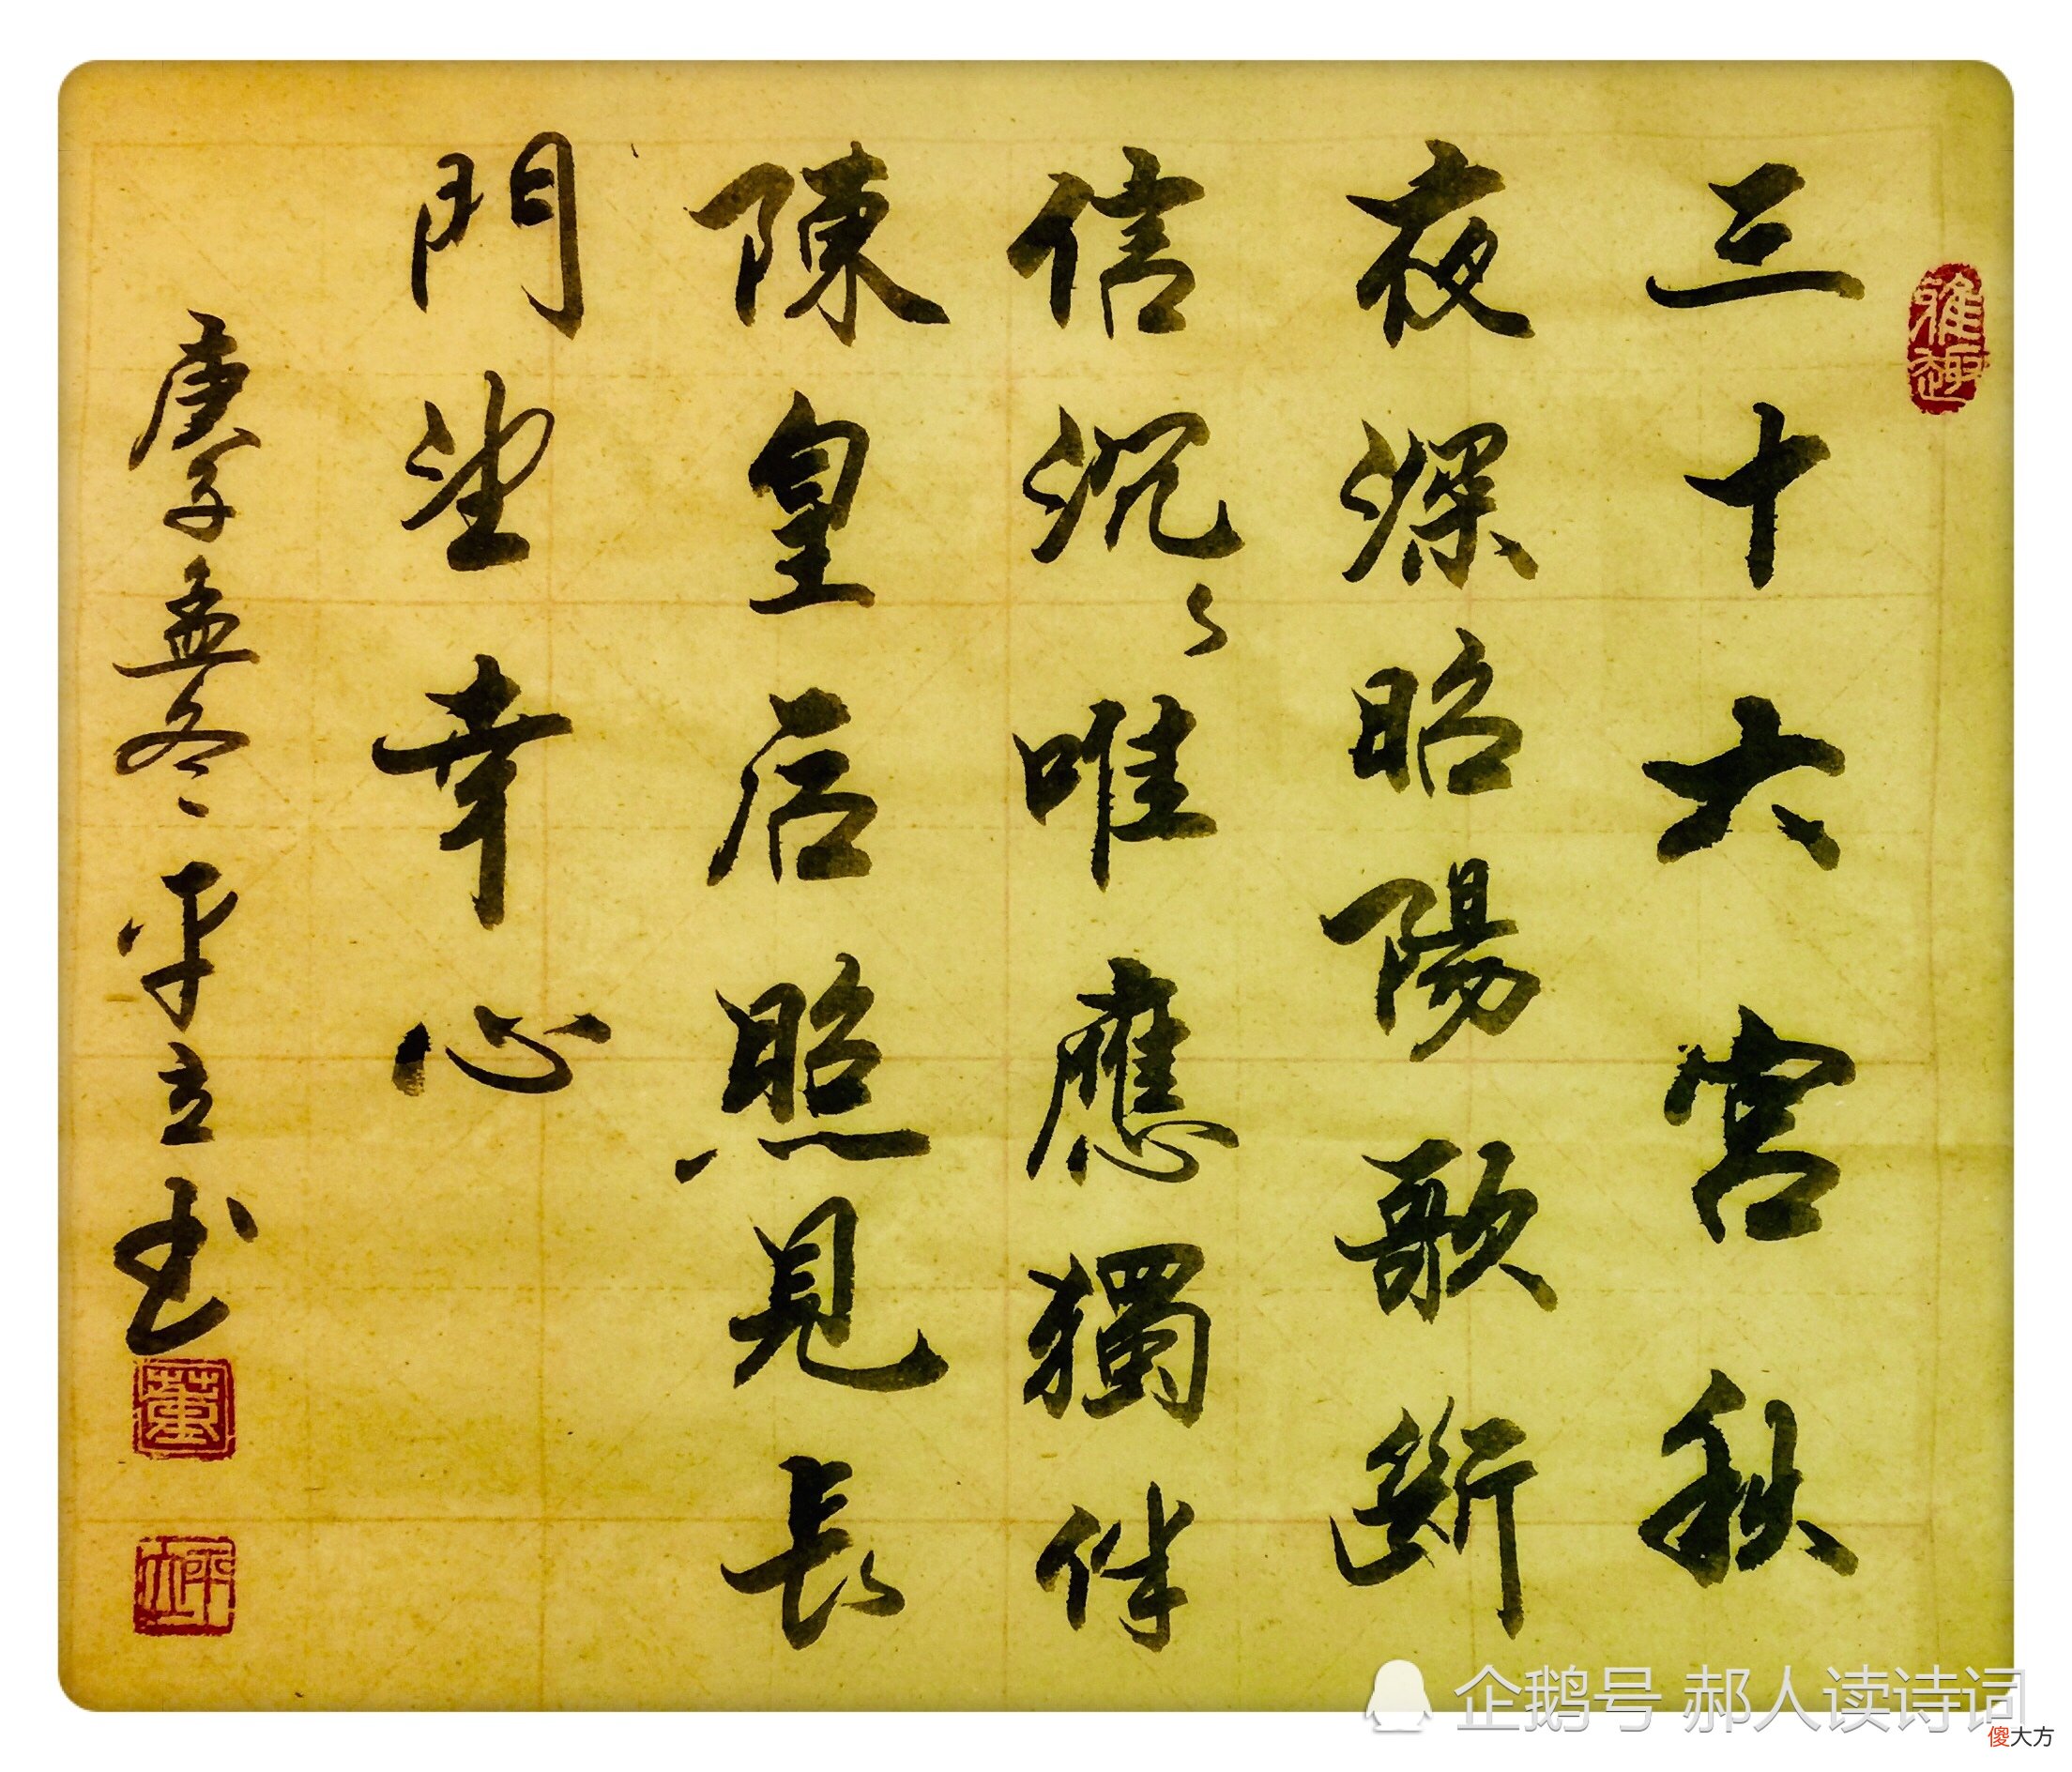 雅趣
三十六宮秋
夜深昭陽歌斷
信沉々唯應獨伴
陳皇后照見長
門望幸心
庚子孟冬平立书
董
企鹅号 郝人读诗词
傻大方